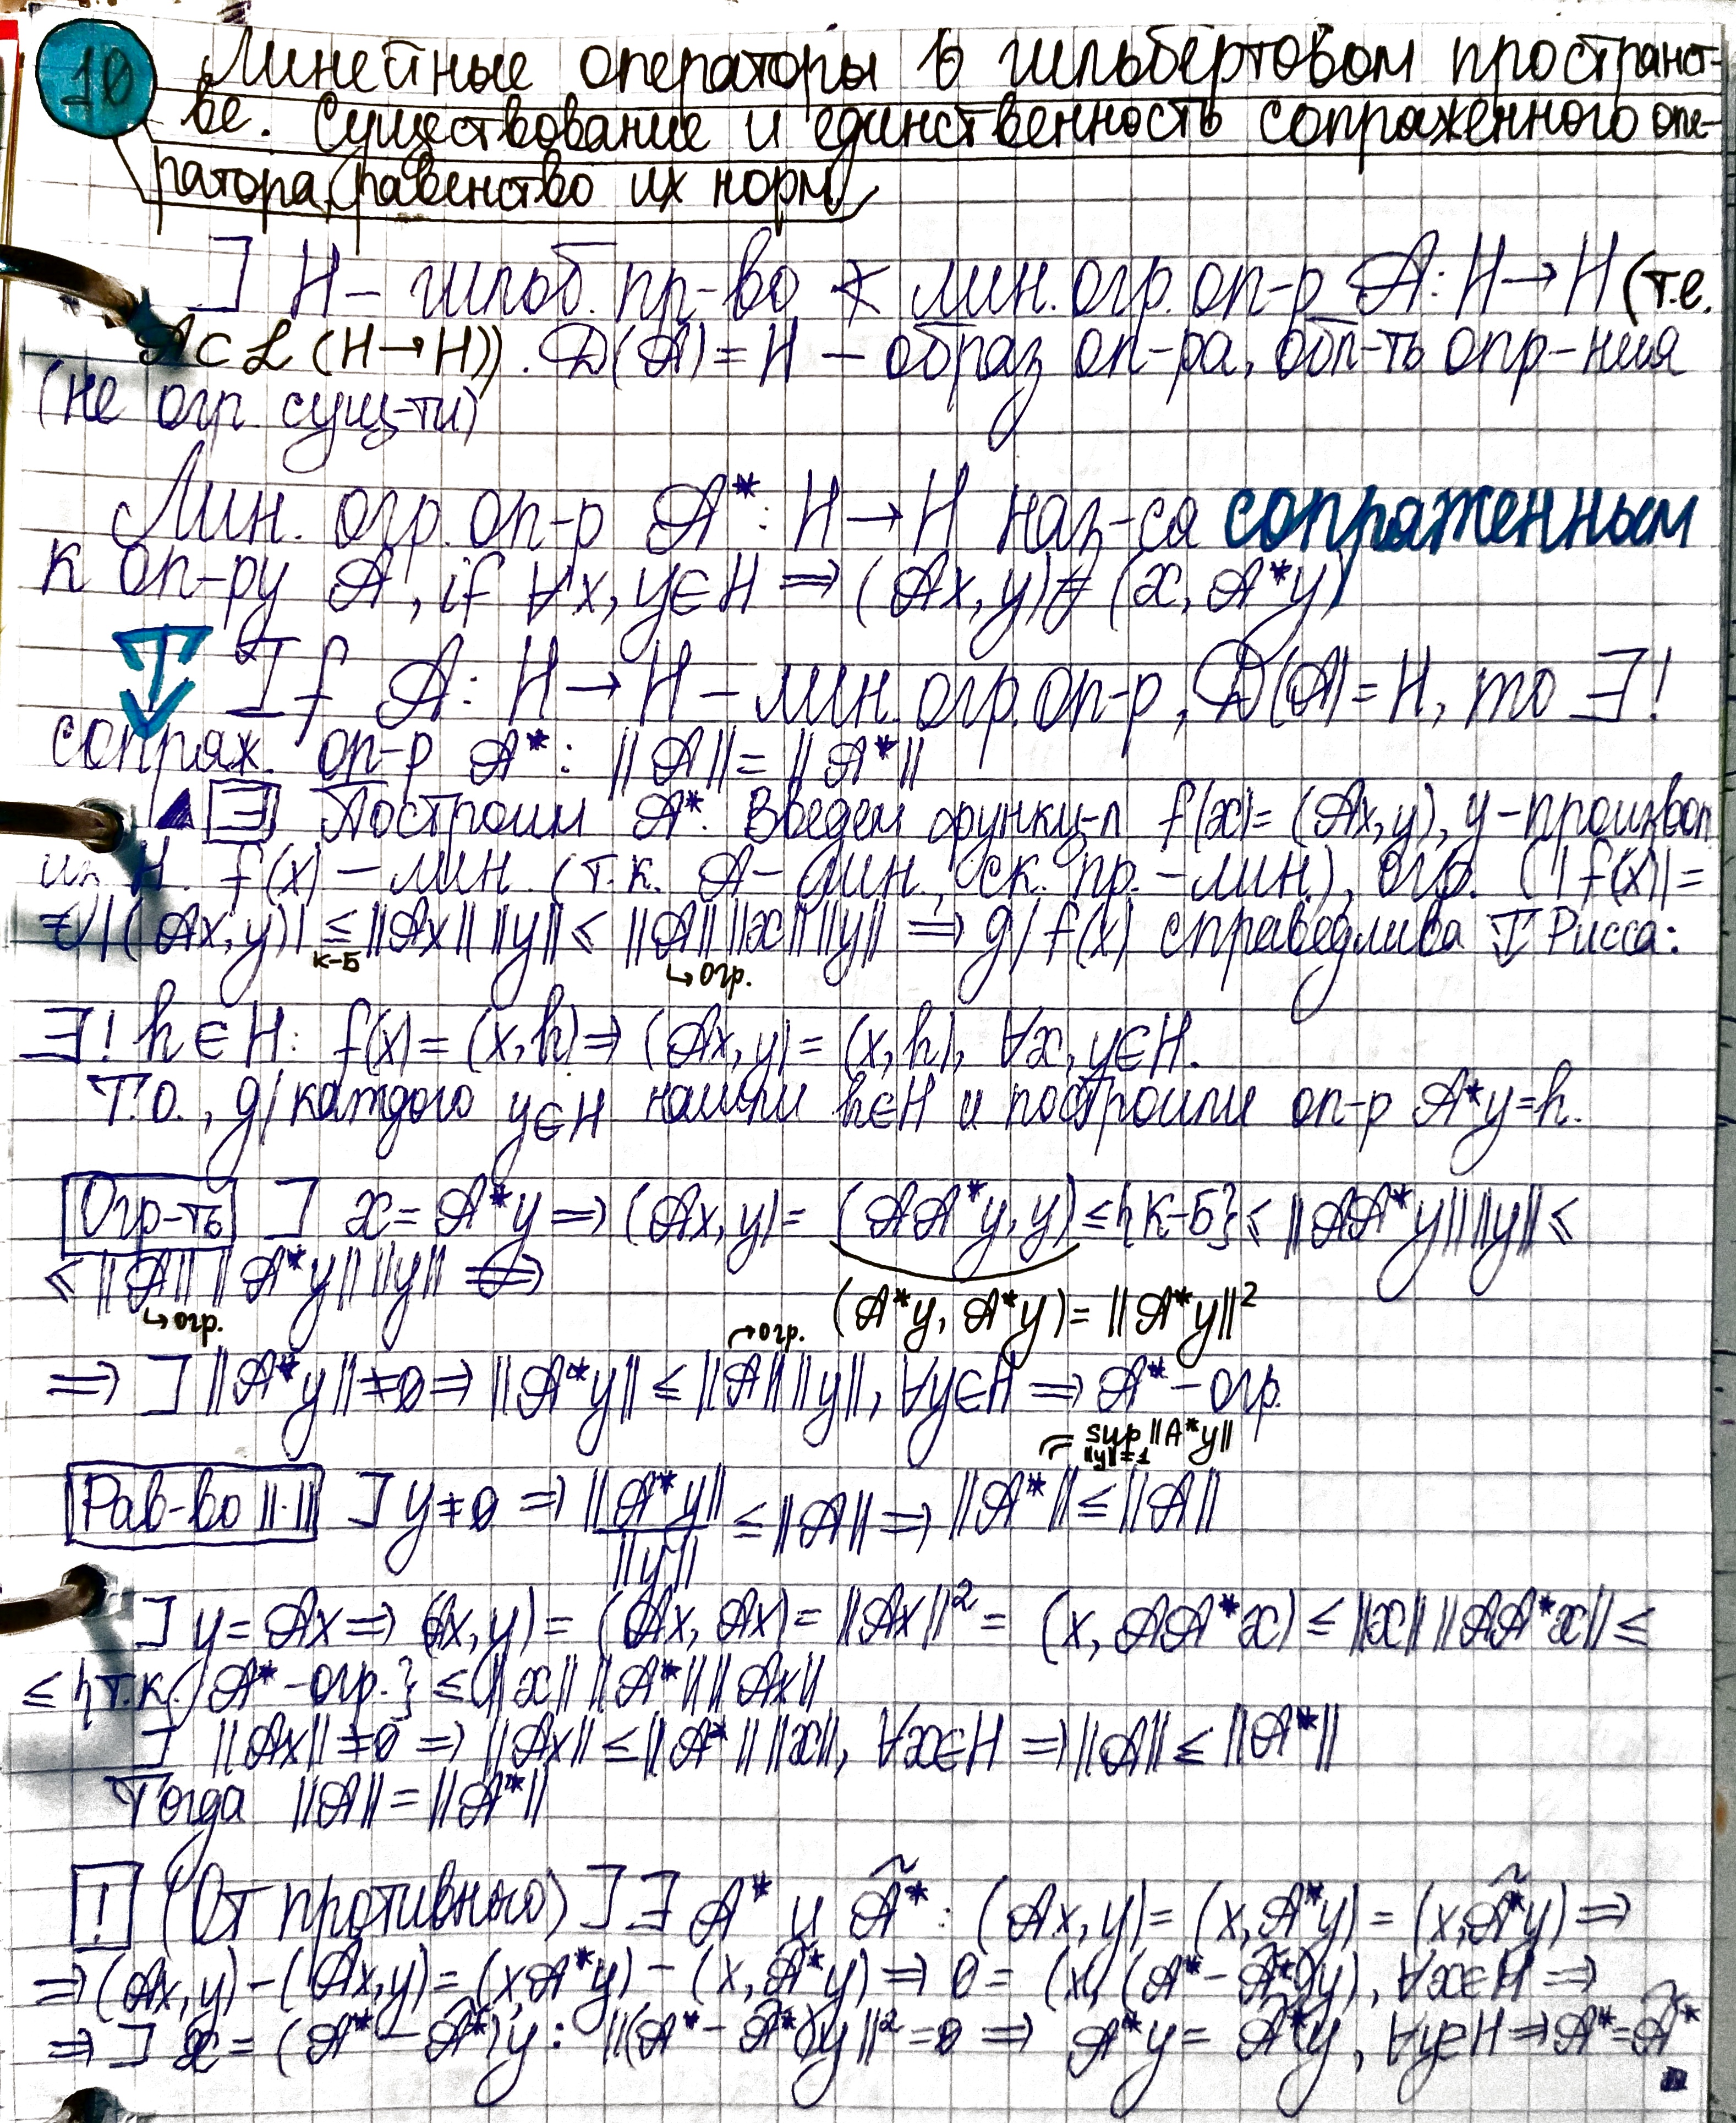 10 Линейные операторы в гильбертовом пространст-
ве. Существование и единственность сопряженного опе-
ратора, равенство их норм
] H – гильб. пр-во ∢ лин. огр. оп-р A: H → H (т.е.
A ⊂ L (H→H)). D(A) = H – образ оп-ра, обл-ть опр-ния
(не огр. сущ-ти)
Лин. огр. оп-р A*: H → H наз-ся сопряженным
к оп-ру A, if ∀x, y ∈ H ⇒ (Ax, y) = (x, A*y)
T If A: H → H – лин. огр. оп-р, D(A) = H, то ∃!
сопряж. оп-р A*: ||A|| = ||A*||
▲ ∃ Построим A*. Введем функц-л f(x) = (Ax, y), y - произвол.
из H. f(x) – лин. (т.к. A – лин., ск. пр. – лин.), огр. (|f(x)| =
= |(Ax, y)| ≤ ||Ax|| ||y|| ≤ ||A|| ||x|| ||y|| ⇒ д/ f(x) справедлива T Рисса:
К-Б ↳ огр.
∃! h ∈ H: f(x) = (x, h) ⇒ (Ax, y) = (x, h), ∀x, y ∈ H.
Т.О., д/ каждого y ∈ H нашли h ∈ H и построили оп-р A*y = h.
Огр-ть ] x = A*y ⇒ (Ax, y) = (AA*y, y) ≤ {К-Б} ≤ ||AA*y|| ||y|| ≤
≤ ||A|| ||A*y|| ||y|| ⇒
↳ огр. (A*y, A*y) = ||A*y||²
→ огр.
⇒ ] ||A*y|| ≠ 0 ⇒ ||A*y|| ≤ ||A|| ||y||, ∀y ∈ H ⇒ A* – огр.
= sup ||A*y||
||y||=1
Рав-во ||·|| ] y ≠ 0 ⇒ ||A*y|| / ||y|| ≤ ||A|| ⇒ ||A*|| ≤ ||A||
] y = Ax ⇒ (Ax, y) = (Ax, Ax) = ||Ax||² = (x, AA*x) ≤ ||x|| ||AA*x|| ≤
≤ {т.к. A* – огр.} ≤ ||x|| ||A*|| ||Ax||
] ||Ax|| ≠ 0 ⇒ ||Ax|| ≤ ||A*|| ||x||, ∀x ∈ H ⇒ ||A|| ≤ ||A*||
Тогда ||A|| = ||A*||
! (От противного) ] ∃ A* и Ã*: (Ax, y) = (x, A*y) = (x, Ã*y) ⇒
⇒ (Ax, y) – (Ax, y) = (x, A*y) – (x, Ã*y) ⇒ 0 = (x, (A* – Ã*)y), ∀x ∈ H ⇒
⇒ ] x = (A* – Ã*)y: ||(A* – Ã*)y||² = 0 ⇒ A*y = Ã*y, ∀y ∈ H ⇒ A* = Ã*
■